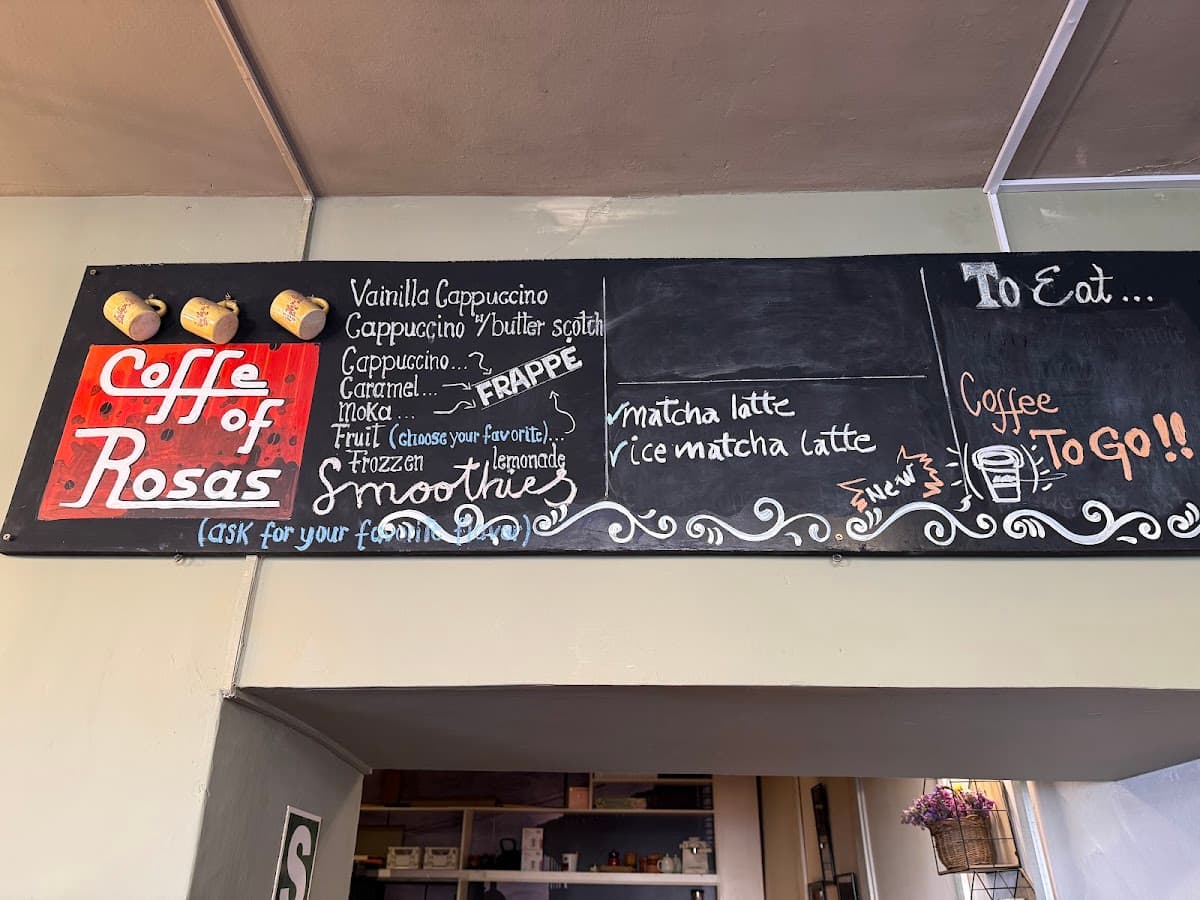 Coffe
of
Rosas
Vainilla Cappuccino
Cappuccino w/butter scotch
Cappuccino...
Caramel...
Moka...
FRAPPÉ
Fruit (choose your favorite)...
Frozzen lemonade
Smoothies
(ask for your favorite flavor)
✓matcha latte
✓ice matcha latte
New
To Eat...
Coffee
To Go!!
S